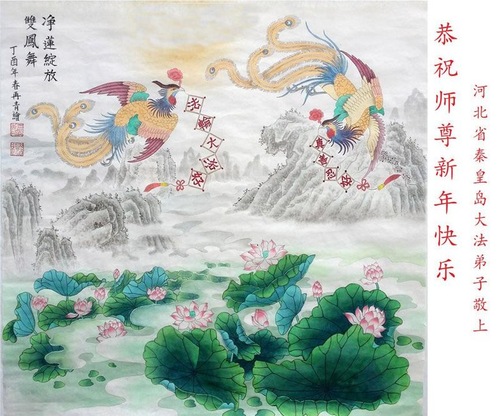 净蓮綻放
雙鳳舞
丁酉年春冉青繪
真善忍好
恭祝师尊新年快乐
河北省秦皇岛大法弟子敬上